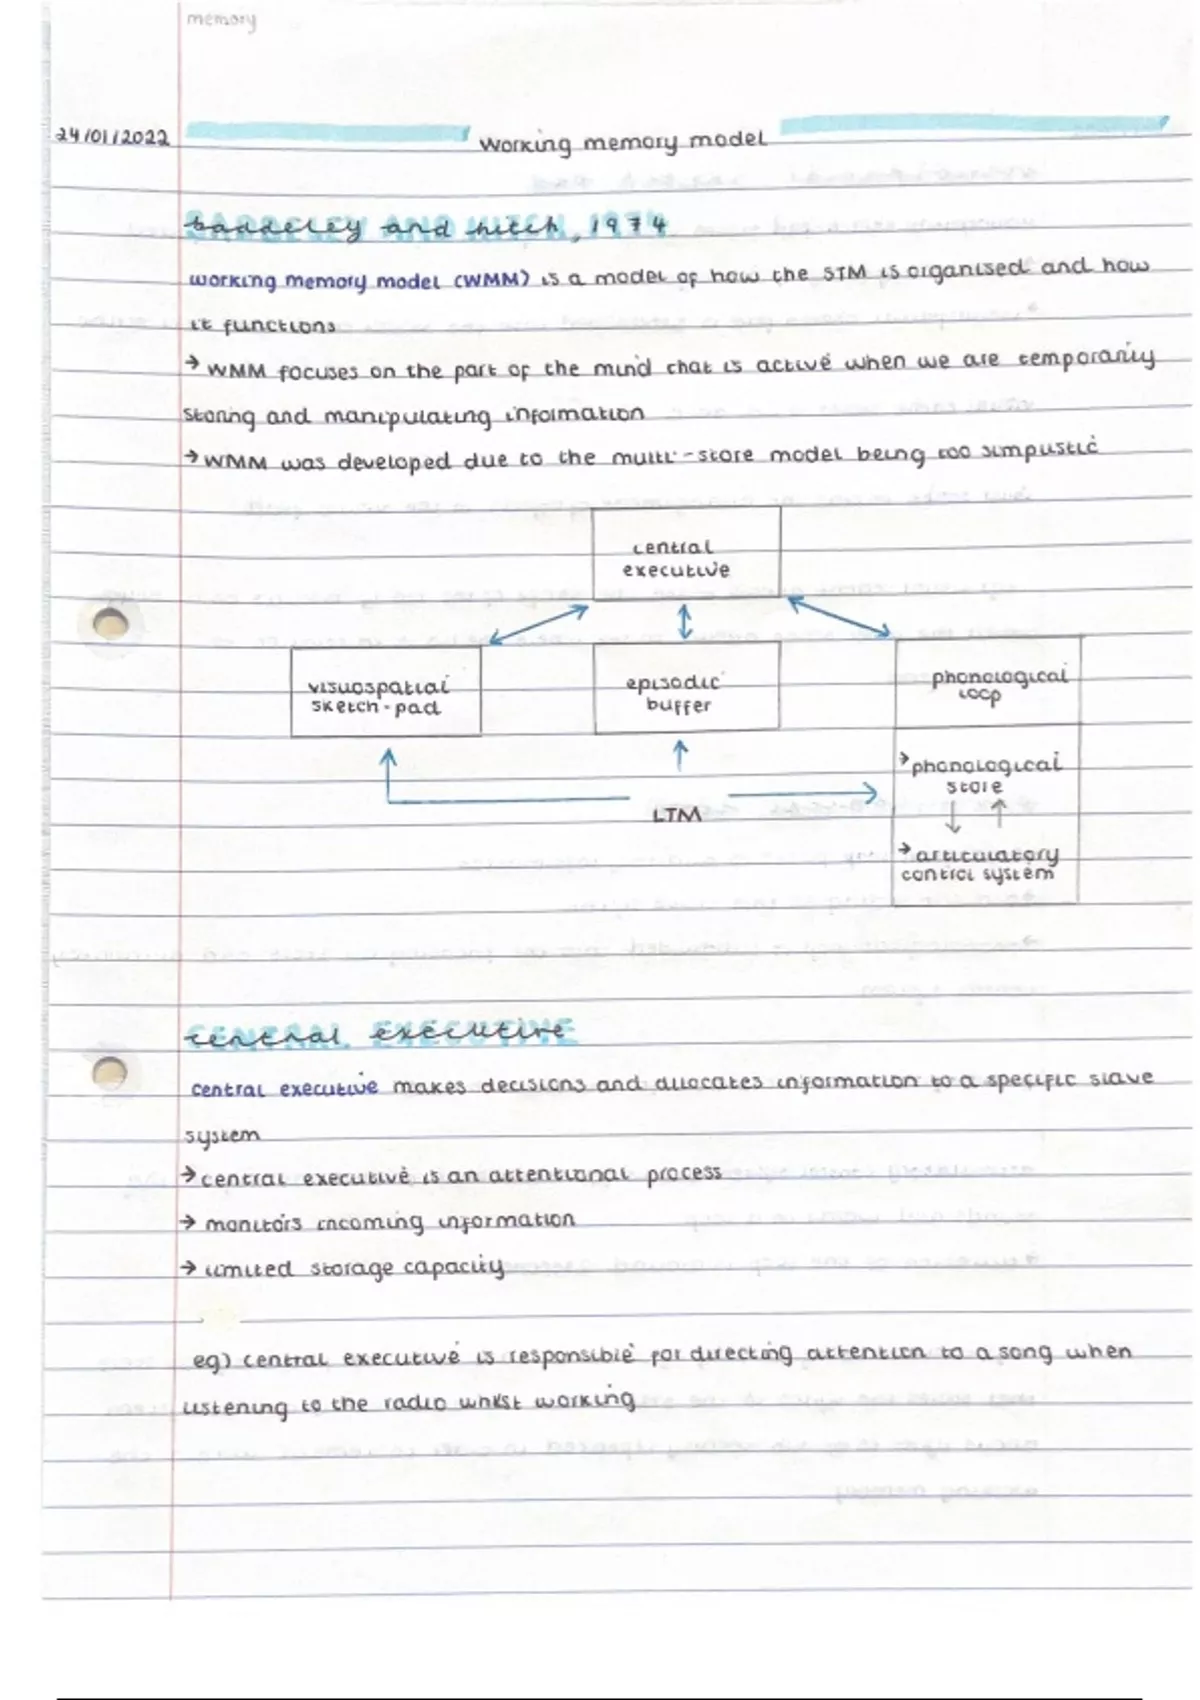 memory
24/01/2022
working memory model
baddeley and hitch, 1974
working memory model (WMM) is a model of how the STM is organised and how
it functions
→ WMM focuses on the part of the mind that is active when we are temporarily
storing and manipulating information
→ WMM was developed due to the multi-store model being too simplistic
central
executive
visuospatial
sketch-pad
episodic
buffer
phonological
loop
→ phonological
store
LTM
→ articulatory
control system
central executive
central executive makes decisions and allocates information to a specific slave
system
→ central executive is an attentional process
→ monitors incoming information
→ limited storage capacity
eg) central executive is responsible for directing attention to a song when
listening to the radio whilst working